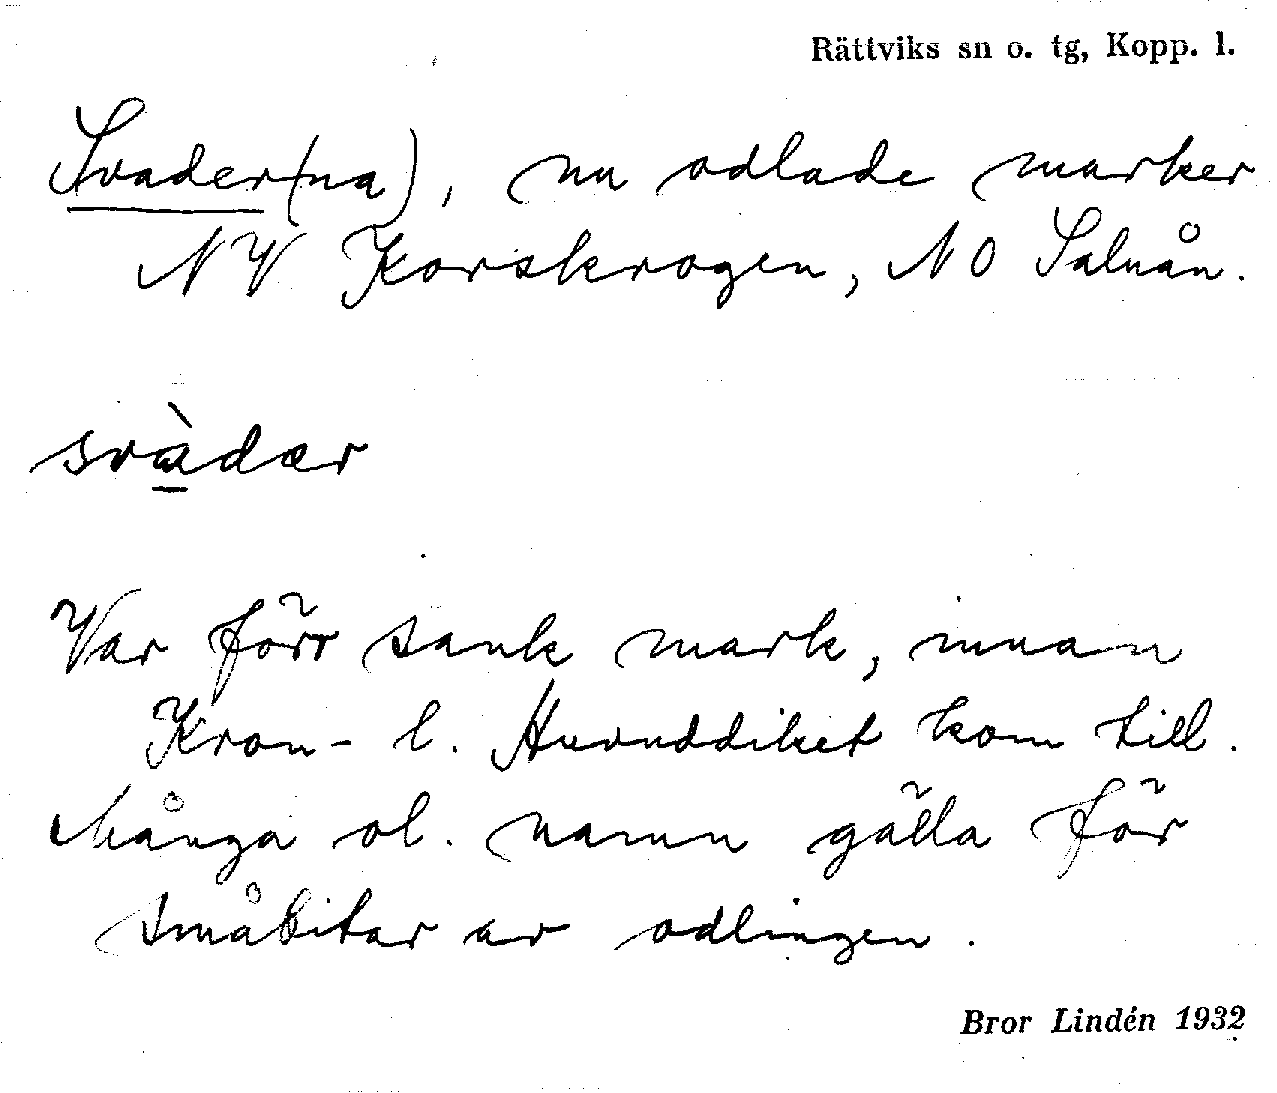 Rättviks sn o. tg, Kopp. l.
Svader(na), nu odlade marker
NV Korskrogen, NO Salnån.
svàdær
Var förr sank mark, innan
Kron- l. Huvuddiket kom till.
Många ol. namn gälla för
småbitar av odlingen.
Bror Lindén 1932